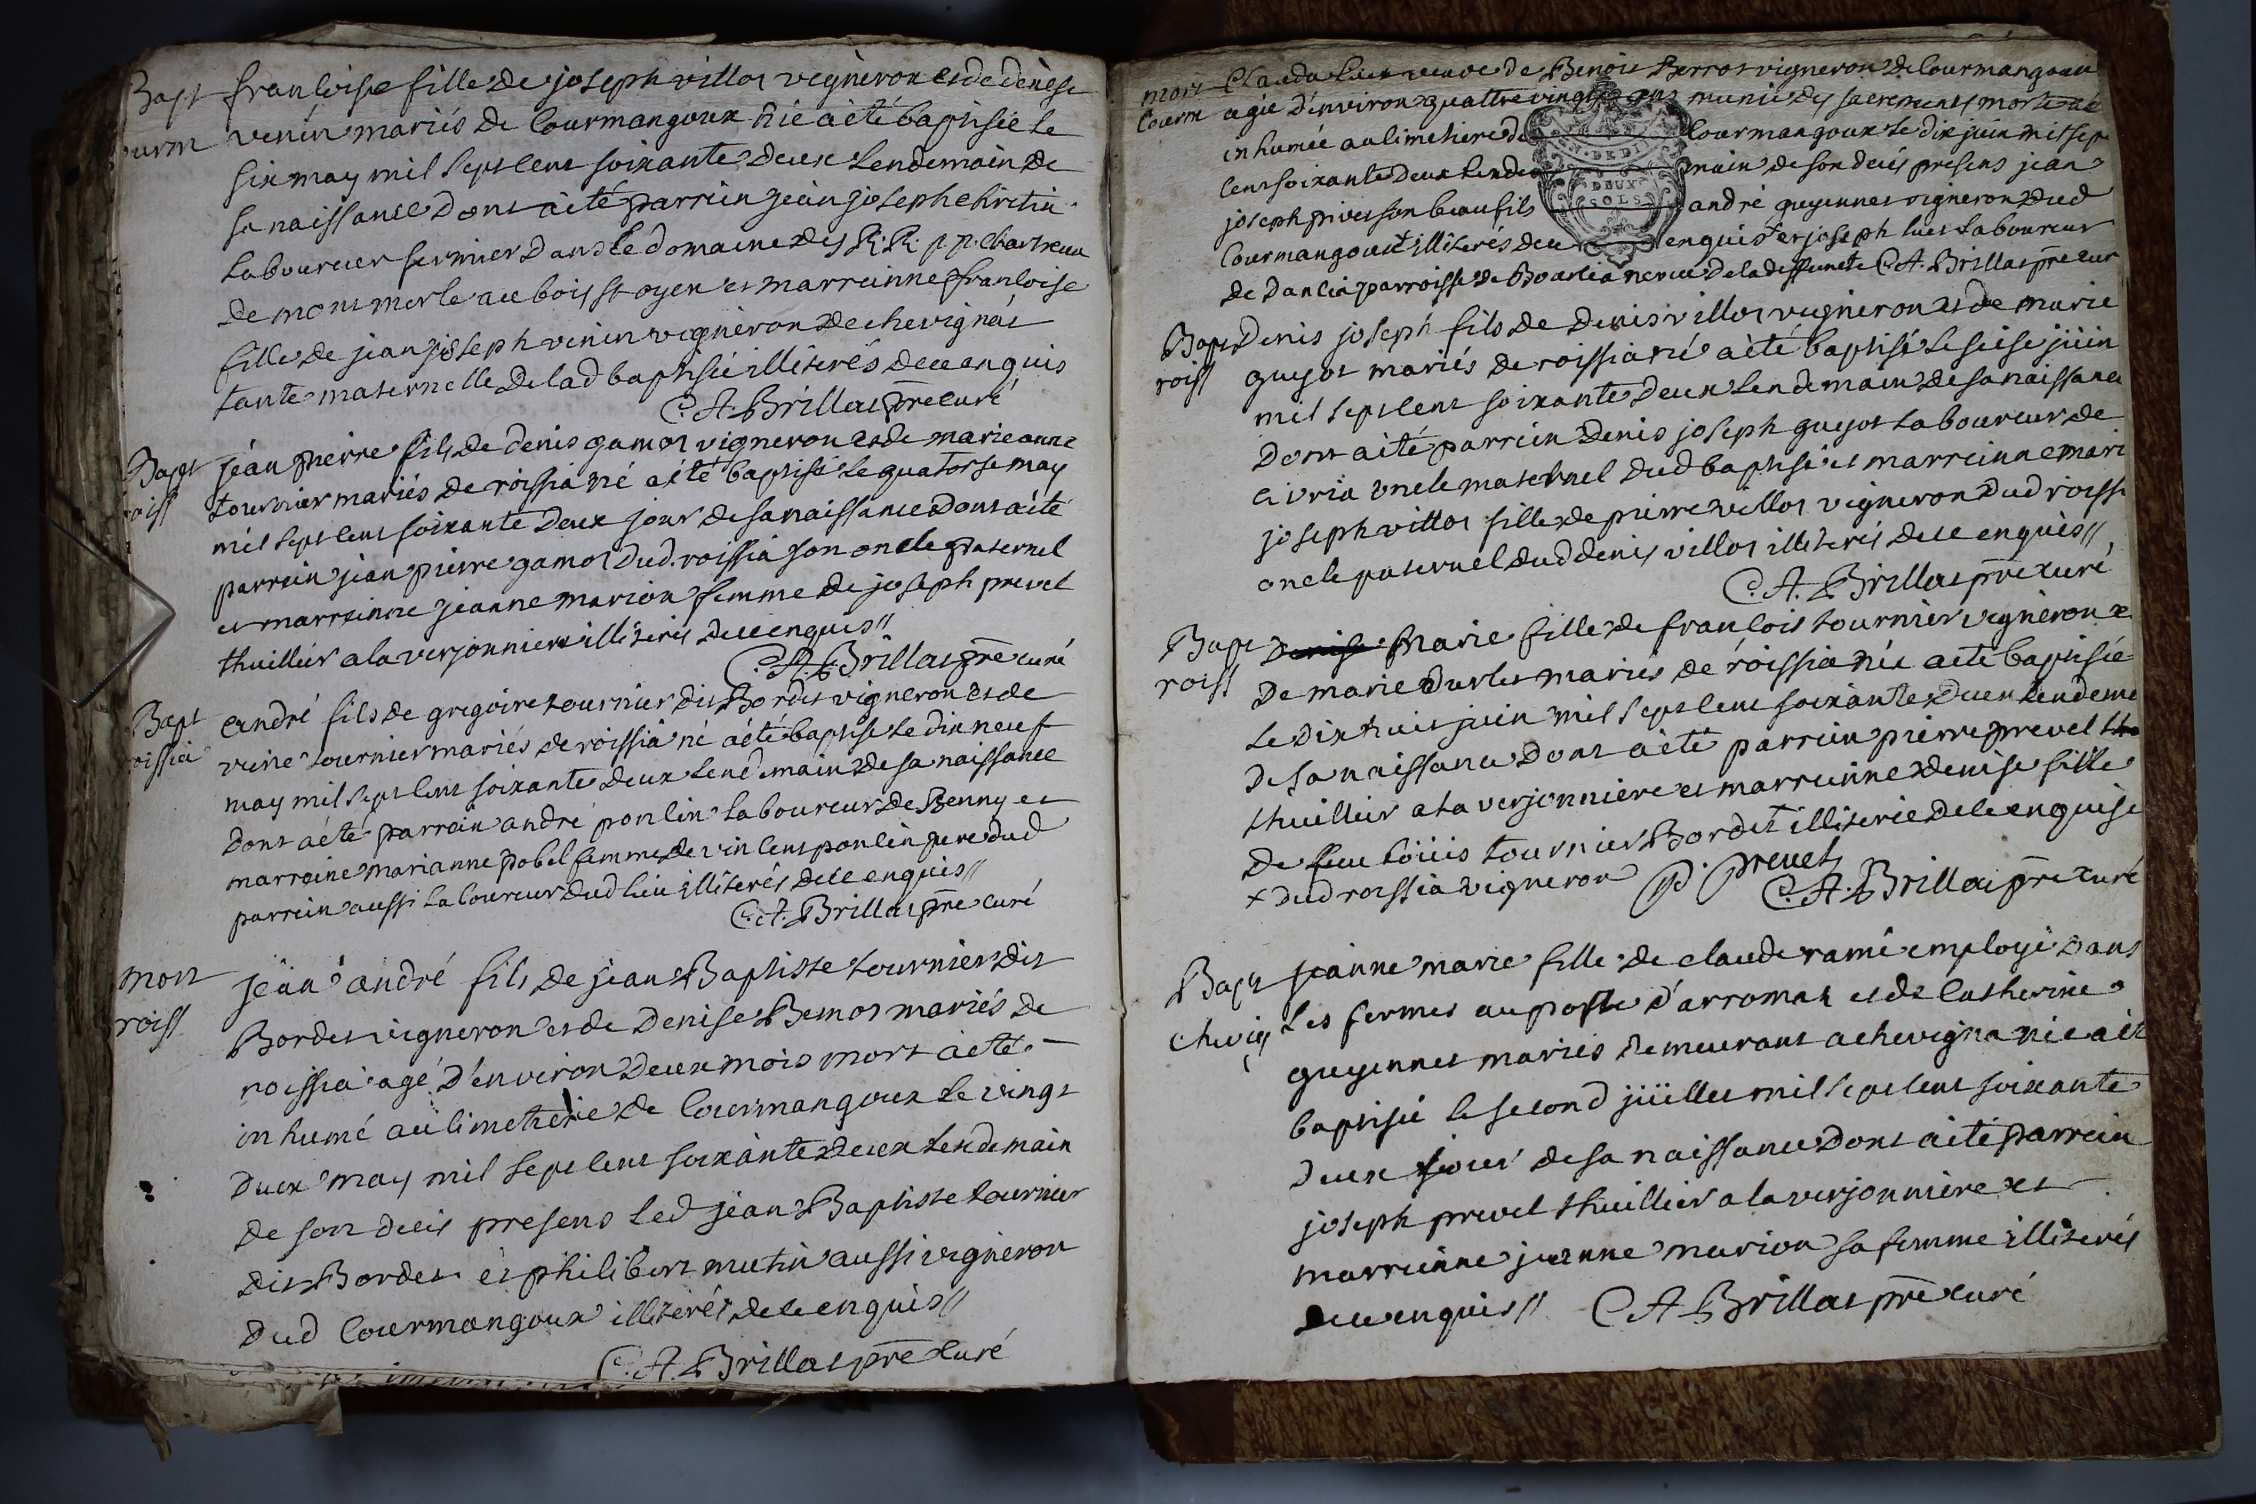 Bapt françoise fille de joseph villot vigneron et de denise
courm venin mariés de Courmangoux née a été baptisée le
six may mil sept cent soixante deux lendemain de
sa naissance dont a été parrein jean joseph chretin
laboureur fermier dans le domaine des R. R. p. p. Chartreux
de montmerle au bois st oyen et marreinne françoise
fille de jean joseph venin vigneron de chevignat
tante maternelle de lad baptisée illiterés de ce enquis
C. A. Brillat prē curé
Bapt jean pierre fils de denis gamot vigneron et de marie anne
roiss tournier mariés de roissia né a été baptisé le quatorse may
mil sept cent soixante deux jour de sa naissance dont a été
parrein jean pierre gamot dud. roissia son oncle paternel
et marreinne jeanne marion femme de joseph prevel
thuillier a la verjonniere illiterés de ce enquis //
C. A. Brillat prē curé
Bapt andré fils de gregoire tournier dit Bordet vigneron et de
roissia reine tournier mariés de roissia né a été baptisé le dix neuf
may mil sept cent soixante deux lendemain de sa naissance
dont a été parrein andré poncin laboureur de Benny et
marreine marianne pobel femme de vincent poncin pere dud
parrein aussi laboureur dud lieu illiterés de ce enquis //
C. A. Brillat prē curé
mort jean andré fils de jean Baptiste tournier dit
roiss Bordet vigneron et de Denise Bemot mariés de
roissia agé d'environ deux mois mort a été
inhumé au cimetiere de Courmangoux le vingt
deux may mil sept cent soixante deux lendemain
de son decés presens led jean Baptiste tournier
dit Bordet et philibert mutin aussi vigneron
dud Courmangoux illiterés de ce enquis //
C. A. Brillat prē curé
mort Clauda Luc veuve de Benoit Perrot vigneron de Courmangoux
Courm agée d'environ quattre vingts ans munie des sacremens morte a été
inhumée au cimetiere de Courmangoux le dix juin mil sept
cent soixante deux lendemain de son decés presens jean
joseph pivet son beau fils andré guyennet vigneron dud
Courmangoux illiterés de ce enquis et joseph luc laboureur
de Dancia parroisse de neveu de la deffuncte C. A. Brillat prē curé
N. DE DI
DEUX
SOLS
Bapt Denis joseph fils de Denis villot vigneron et de marie
roiss guyot mariés de roissia né a été baptisé le seise juin
mil sept cent soixante deux lendemain de sa naissance
dont a été parrein Denis joseph guyot laboureur de
civria oncle maternel dud baptisé et marreinne marie
joseph villot fille de pierre villot vigneron dud roissia
oncle paternel dud denis villot illiterés de ce enquis //
C. A. Brillat prē curé
Bapt Denise Marie fille de françois tournier vigneron et
roiss de marie Durlet mariés de roissia née a été baptisée
le dix huit juin mil sept cent soixante deux lendemain
de sa naissance dont a été parrein pierre prevel
thuillier a la verjonniere et marreinne denise fille
de feu loüis tournier Bordet illiterée de ce enquise
+ dud roissia vigneron P. prevel
C. A. Brillat prē curé
Bapt jeanne marie fille de claude ramé employé dans
chevig les fermes au poste d'arromas et de Catherine
guyennet mariés demeurant a chevigna née a été
baptisée le second jüillet mil sept cent soixante
deux jour de sa naissance dont a été parrein
joseph prevel thuillier a la verjonniere et
marreinne jeanne marion sa femme illiterés
de ce enquis // C. A. Brillat prē curé